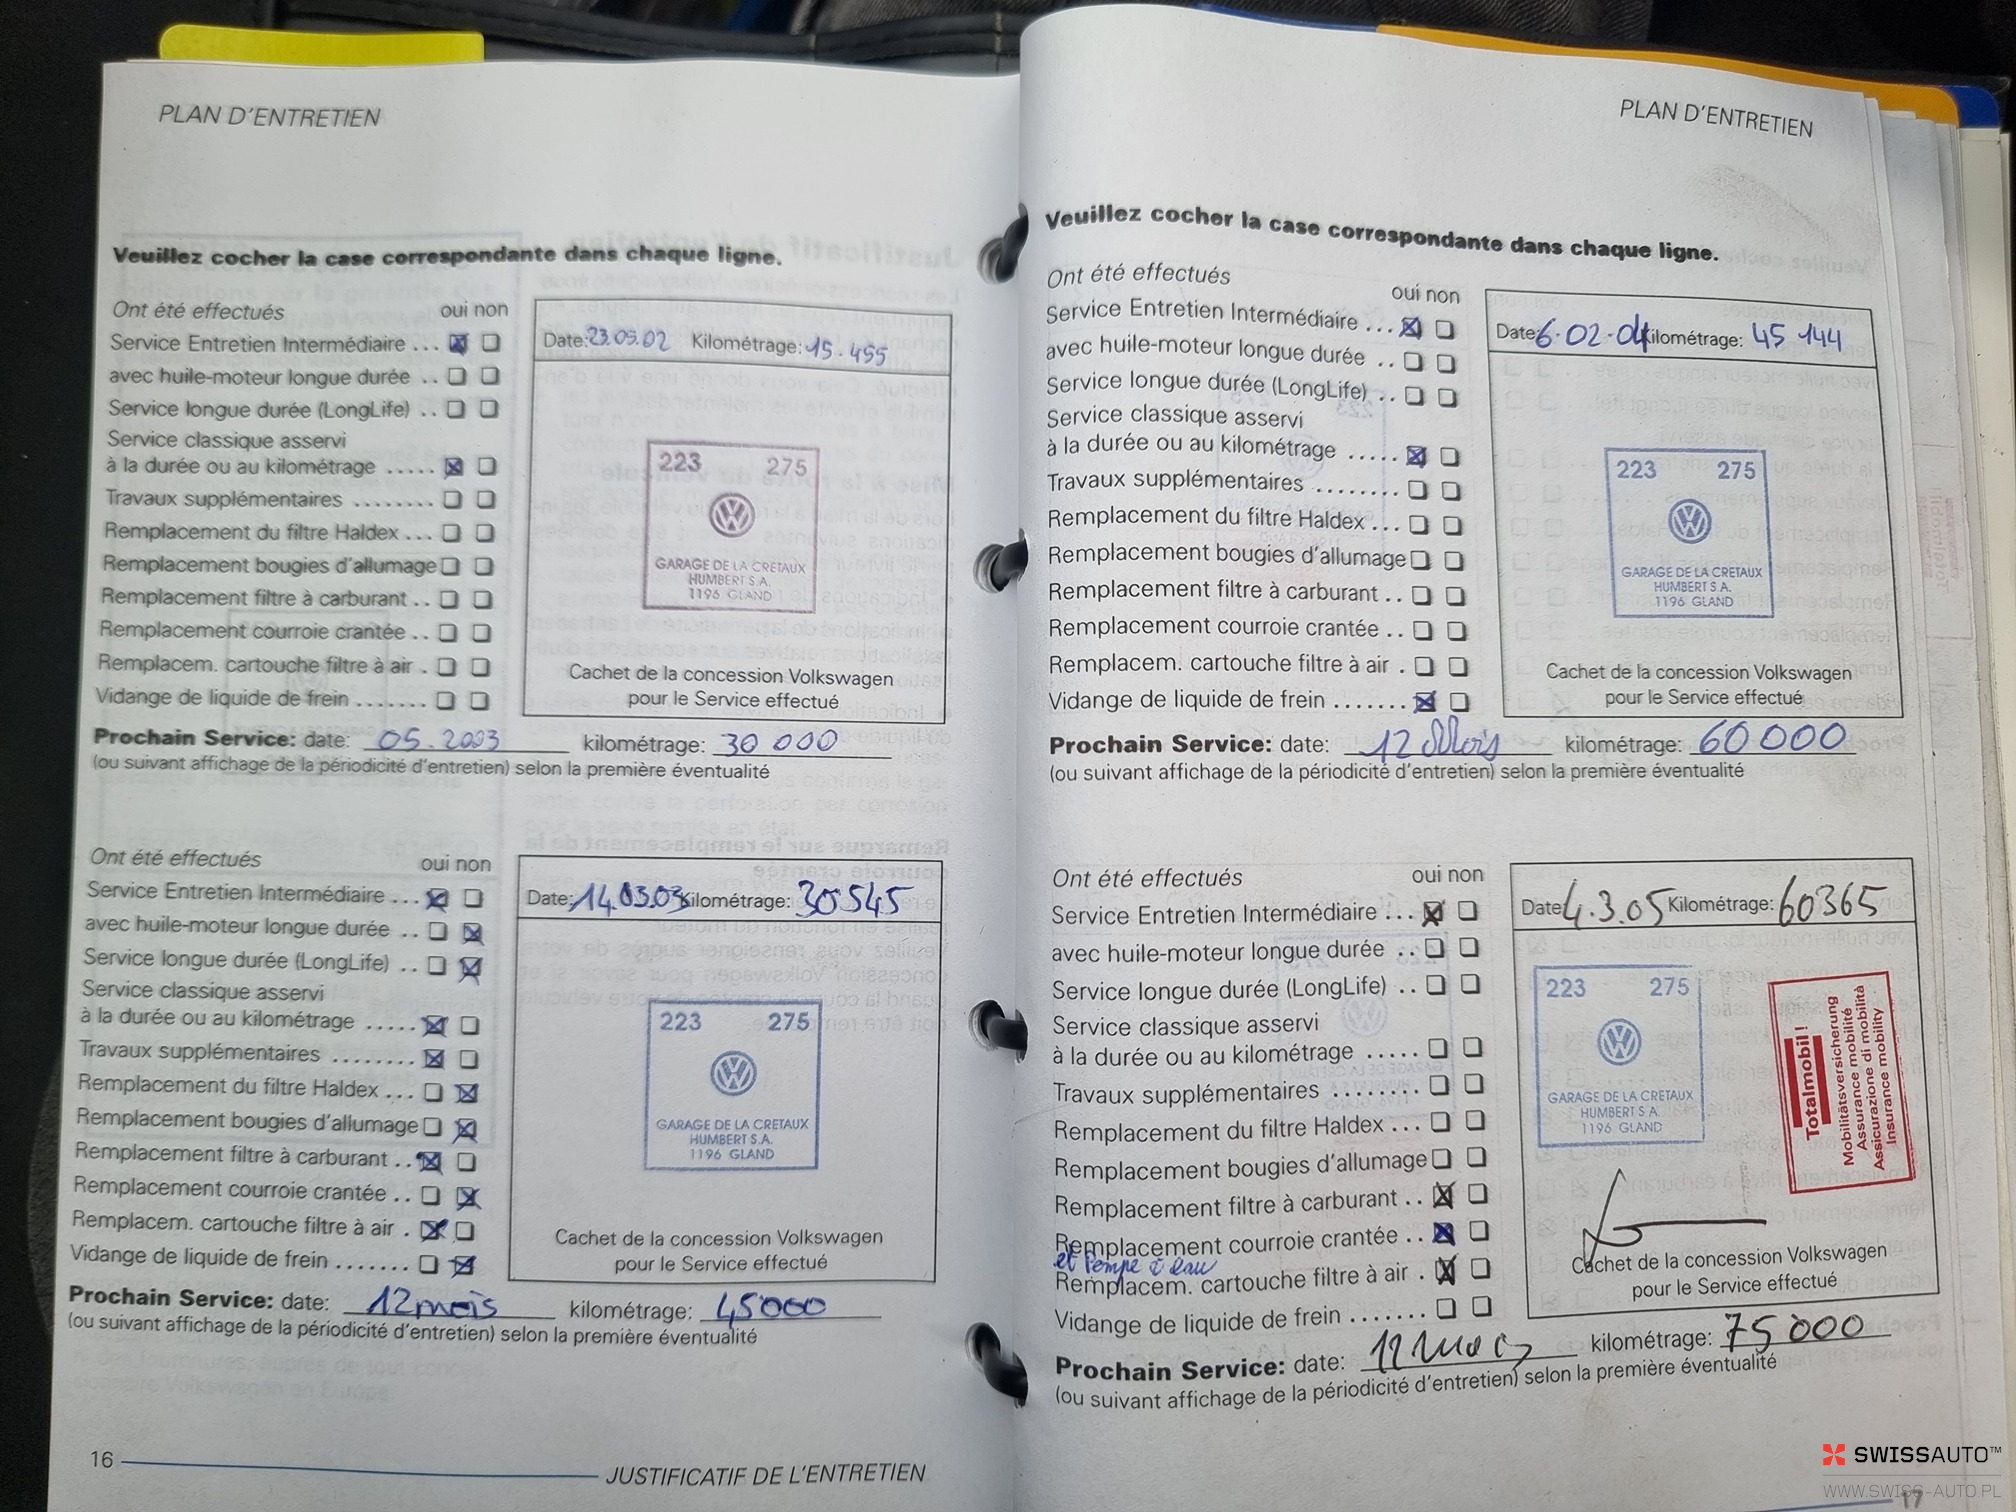 PLAN D'ENTRETIEN
Veuillez cocher la case correspondante dans chaque ligne.
Ont été effectués oui non
Service Entretien Intermédiaire ...
avec huile-moteur longue durée ..
Service longue durée (LongLife) ..
Service classique asservi
à la durée ou au kilométrage .....
Travaux supplémentaires ........
Remplacement du filtre Haldex ...
Remplacement bougies d'allumage
Remplacement filtre à carburant ..
Remplacement courroie crantée ..
Remplacem. cartouche filtre à air .
Vidange de liquide de frein .......
Date: 23.09.02 Kilométrage: 15.455
223 275
GARAGE DE LA CRETAUX
HUMBERT S.A.
1196 GLAND
Cachet de la concession Volkswagen
pour le Service effectué
Prochain Service: date: 05.2003 kilométrage: 30 000
(ou suivant affichage de la périodicité d'entretien) selon la première éventualité
Ont été effectués oui non
Service Entretien Intermédiaire ...
avec huile-moteur longue durée ..
Service longue durée (LongLife) ..
Service classique asservi
à la durée ou au kilométrage .....
Travaux supplémentaires ........
Remplacement du filtre Haldex ...
Remplacement bougies d'allumage
Remplacement filtre à carburant ..
Remplacement courroie crantée ..
Remplacem. cartouche filtre à air .
Vidange de liquide de frein .......
Date: 14.03.03 Kilométrage: 30545
223 275
GARAGE DE LA CRETAUX
HUMBERT S.A.
1196 GLAND
Cachet de la concession Volkswagen
pour le Service effectué
Prochain Service: date: 12 mois kilométrage: 45'000
(ou suivant affichage de la périodicité d'entretien) selon la première éventualité
16 JUSTIFICATIF DE L'ENTRETIEN
PLAN D'ENTRETIEN
Veuillez cocher la case correspondante dans chaque ligne.
Ont été effectués oui non
Service Entretien Intermédiaire ...
avec huile-moteur longue durée ..
Service longue durée (LongLife) ..
Service classique asservi
à la durée ou au kilométrage .....
Travaux supplémentaires ........
Remplacement du filtre Haldex ...
Remplacement bougies d'allumage
Remplacement filtre à carburant ..
Remplacement courroie crantée ..
Remplacem. cartouche filtre à air .
Vidange de liquide de frein .......
Date: 6.02.04 Kilométrage: 45 144
223 275
GARAGE DE LA CRETAUX
HUMBERT S.A.
1196 GLAND
Cachet de la concession Volkswagen
pour le Service effectué
Prochain Service: date: 12 Mois kilométrage: 60 000
(ou suivant affichage de la périodicité d'entretien) selon la première éventualité
Ont été effectués oui non
Service Entretien Intermédiaire ...
avec huile-moteur longue durée ..
Service longue durée (LongLife) ..
Service classique asservi
à la durée ou au kilométrage .....
Travaux supplémentaires ........
Remplacement du filtre Haldex ...
Remplacement bougies d'allumage
Remplacement filtre à carburant ..
Remplacement courroie crantée ..
et Pompe à eau
Remplacem. cartouche filtre à air .
Vidange de liquide de frein .......
Date: 4.3.05 Kilométrage: 60365
223 275
GARAGE DE LA CRETAUX
HUMBERT S.A.
1196 GLAND
Totalmobil!
Mobilitätsversicherung
Assurance mobilité
Assicurazione di mobilità
Insurance mobility
Cachet de la concession Volkswagen
pour le Service effectué
Prochain Service: date: 12 mois kilométrage: 75'000
(ou suivant affichage de la périodicité d'entretien) selon la première éventualité
17
SWISSAUTO™
WWW.SWISS-AUTO.PL